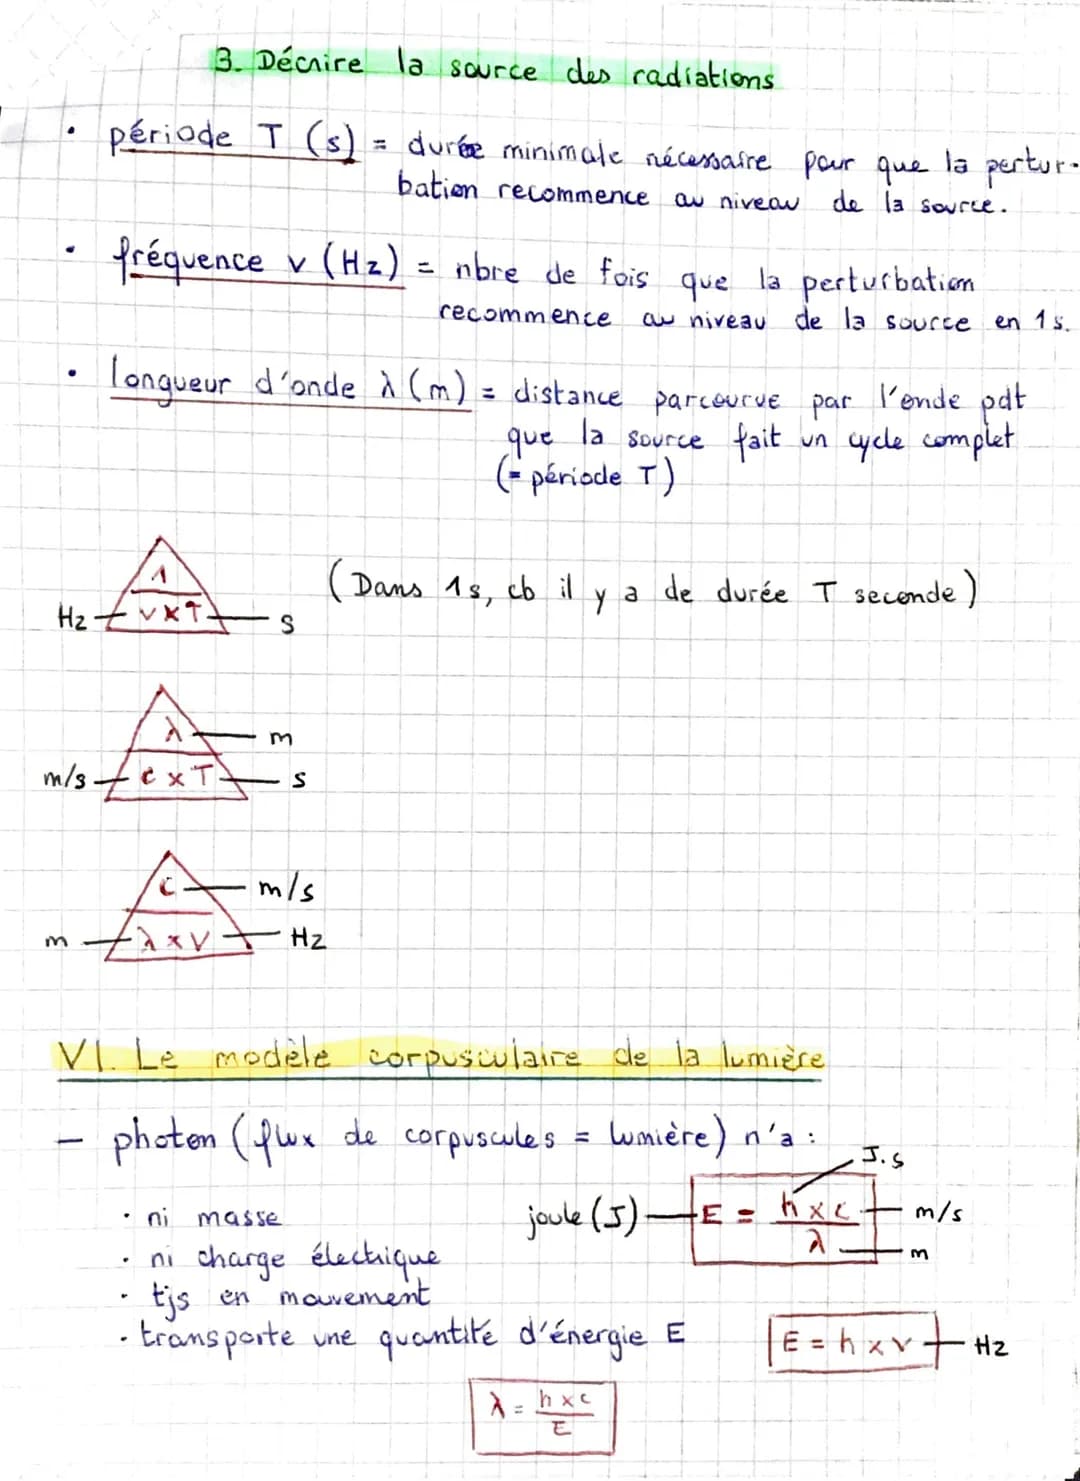 3. Décrire la source des radiations
• période T (s) = durée minimale nécessaire pour que la pertur-
bation recommence au niveau de la source.
• fréquence ν (Hz) = nbre de fois que la perturbation
recommence au niveau de la source en 1s.
• longueur d'onde λ (m) = distance parcourue par l'onde pdt
que la source fait un cycle complet
(= période T)
1
Hz ν × T s
(Dans 1s, cb il y a de durée T seconde)
λ m
m/s c × T s
c m/s
m λ × ν Hz
VI. Le modèle corpusculaire de la lumière
— photon (flux de corpuscules = lumière) n'a :
• ni masse
• ni charge électrique
• tjs en mouvement
• transporte une quantité d'énergie E
J.s
joule (J) E = h × c / λ m/s
m
E = h × ν Hz
λ = h × c / E